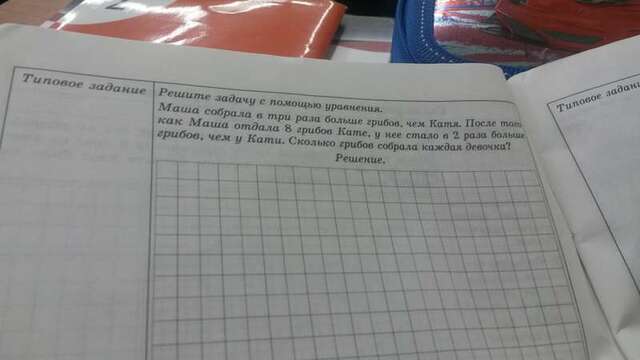 Типовое задание
Решите задачу с помощью уравнения.
Маша собрала в три раза больше грибов, чем Катя. После того
как Маша отдала 8 грибов Кате, у нее стало в 2 раза больше
грибов, чем у Кати. Сколько грибов собрала каждая девочка?
Решение.
Типовое